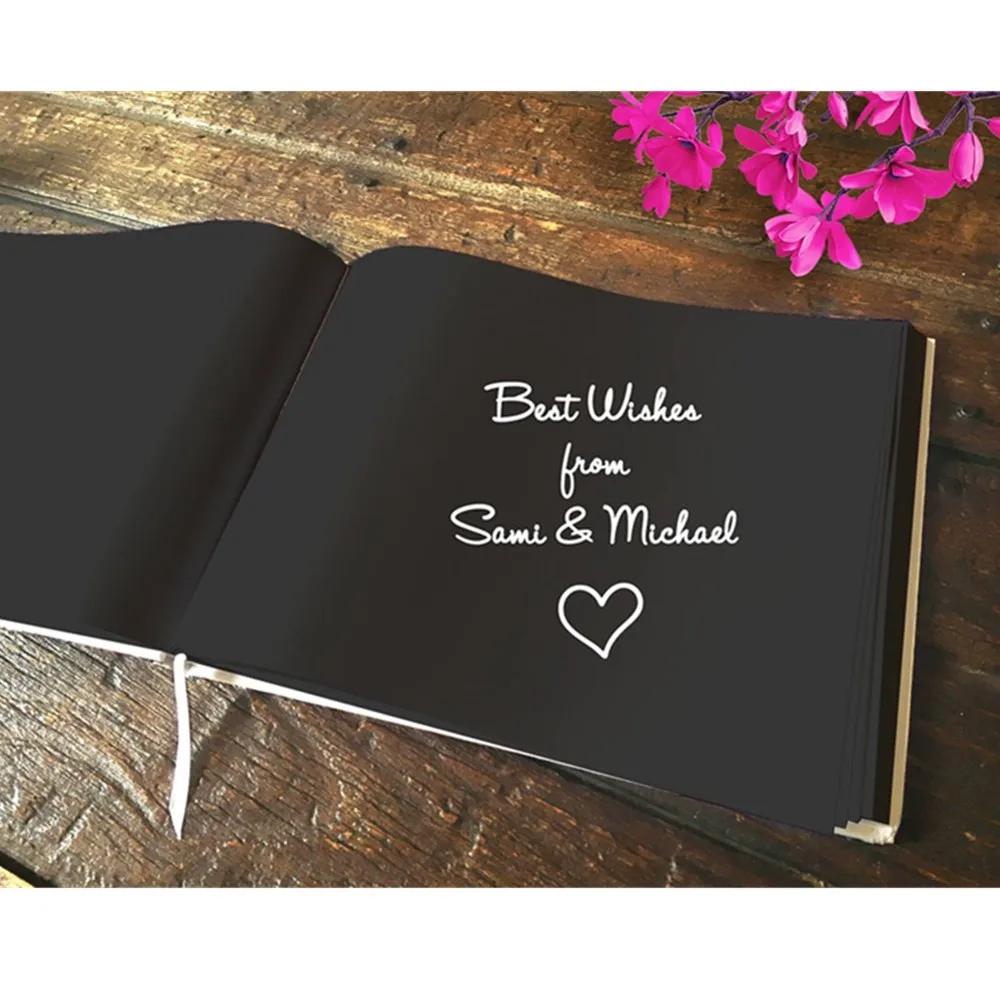 Best Wishes
from
Sami & Michael